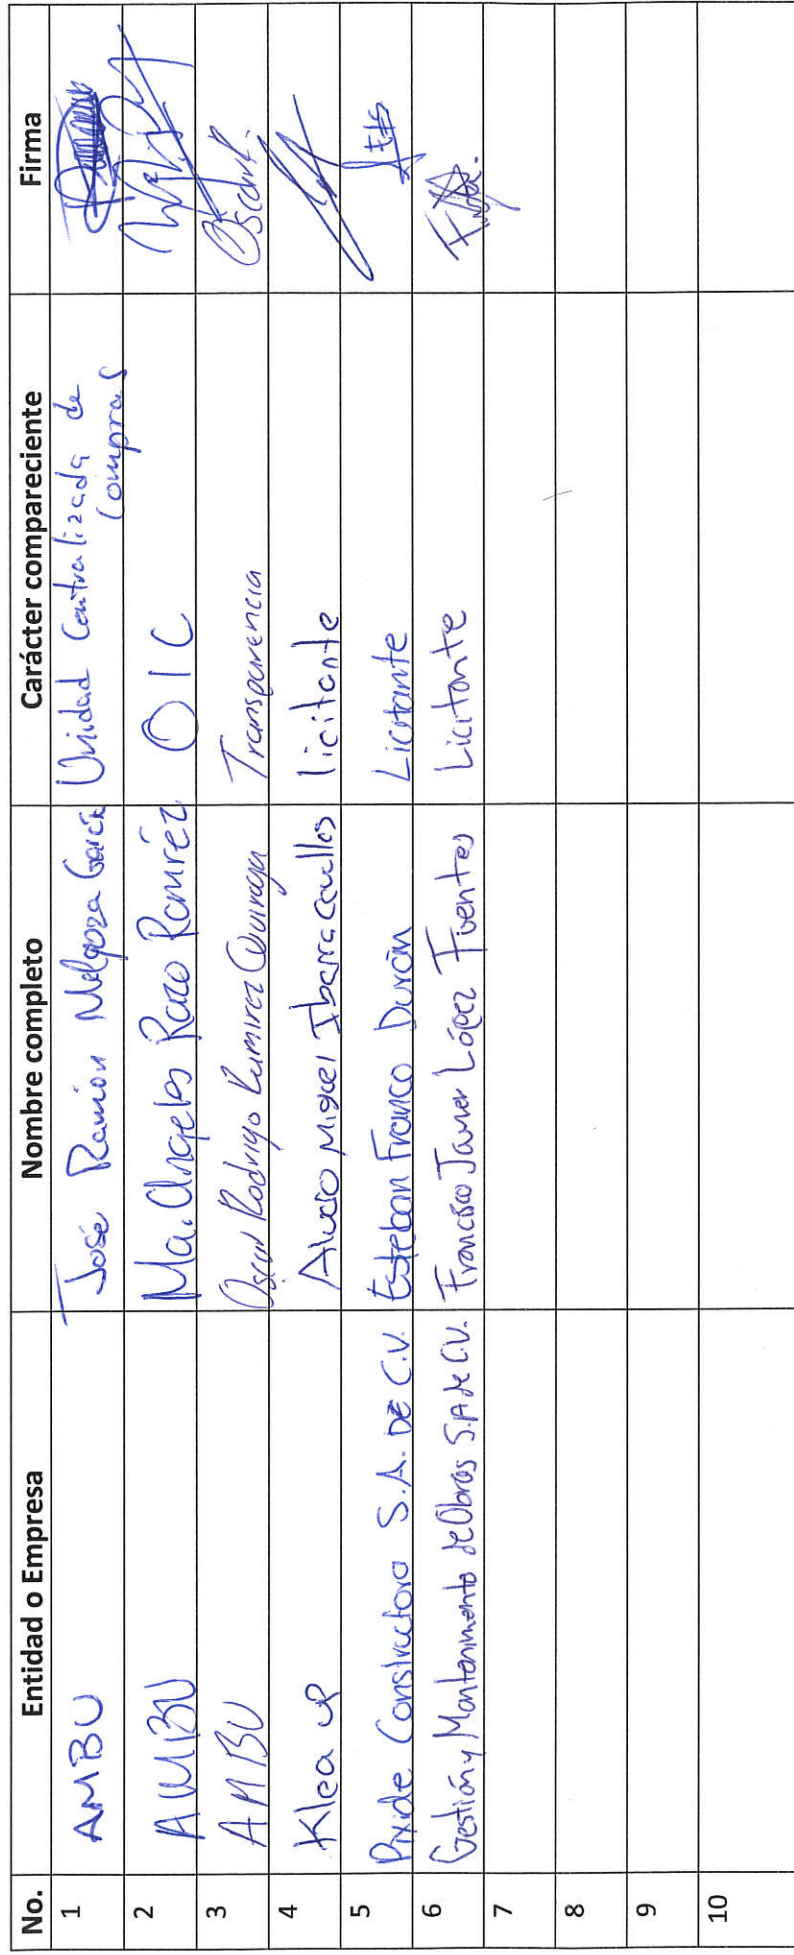 No. Entidad o Empresa Nombre completo Carácter compareciente Firma
1 AMBU José Ramón Melgoza García Unidad Centralizada de
Compras
2 AMBU Ma. Angeles Razo Ramírez OIC
3 AMBU Oscar Rodrigo Ramirez Transparencia Oscar R.
4 Klea Miguel Ibarra licitante
5 Pixide Constructora S.A. DE C.V. Esteban Franco Durán Licitante
6 Gestión y Mantenimiento de Obras S.A de C.V. Francisco Javier López Fuentes Licitante
7
8
9
10